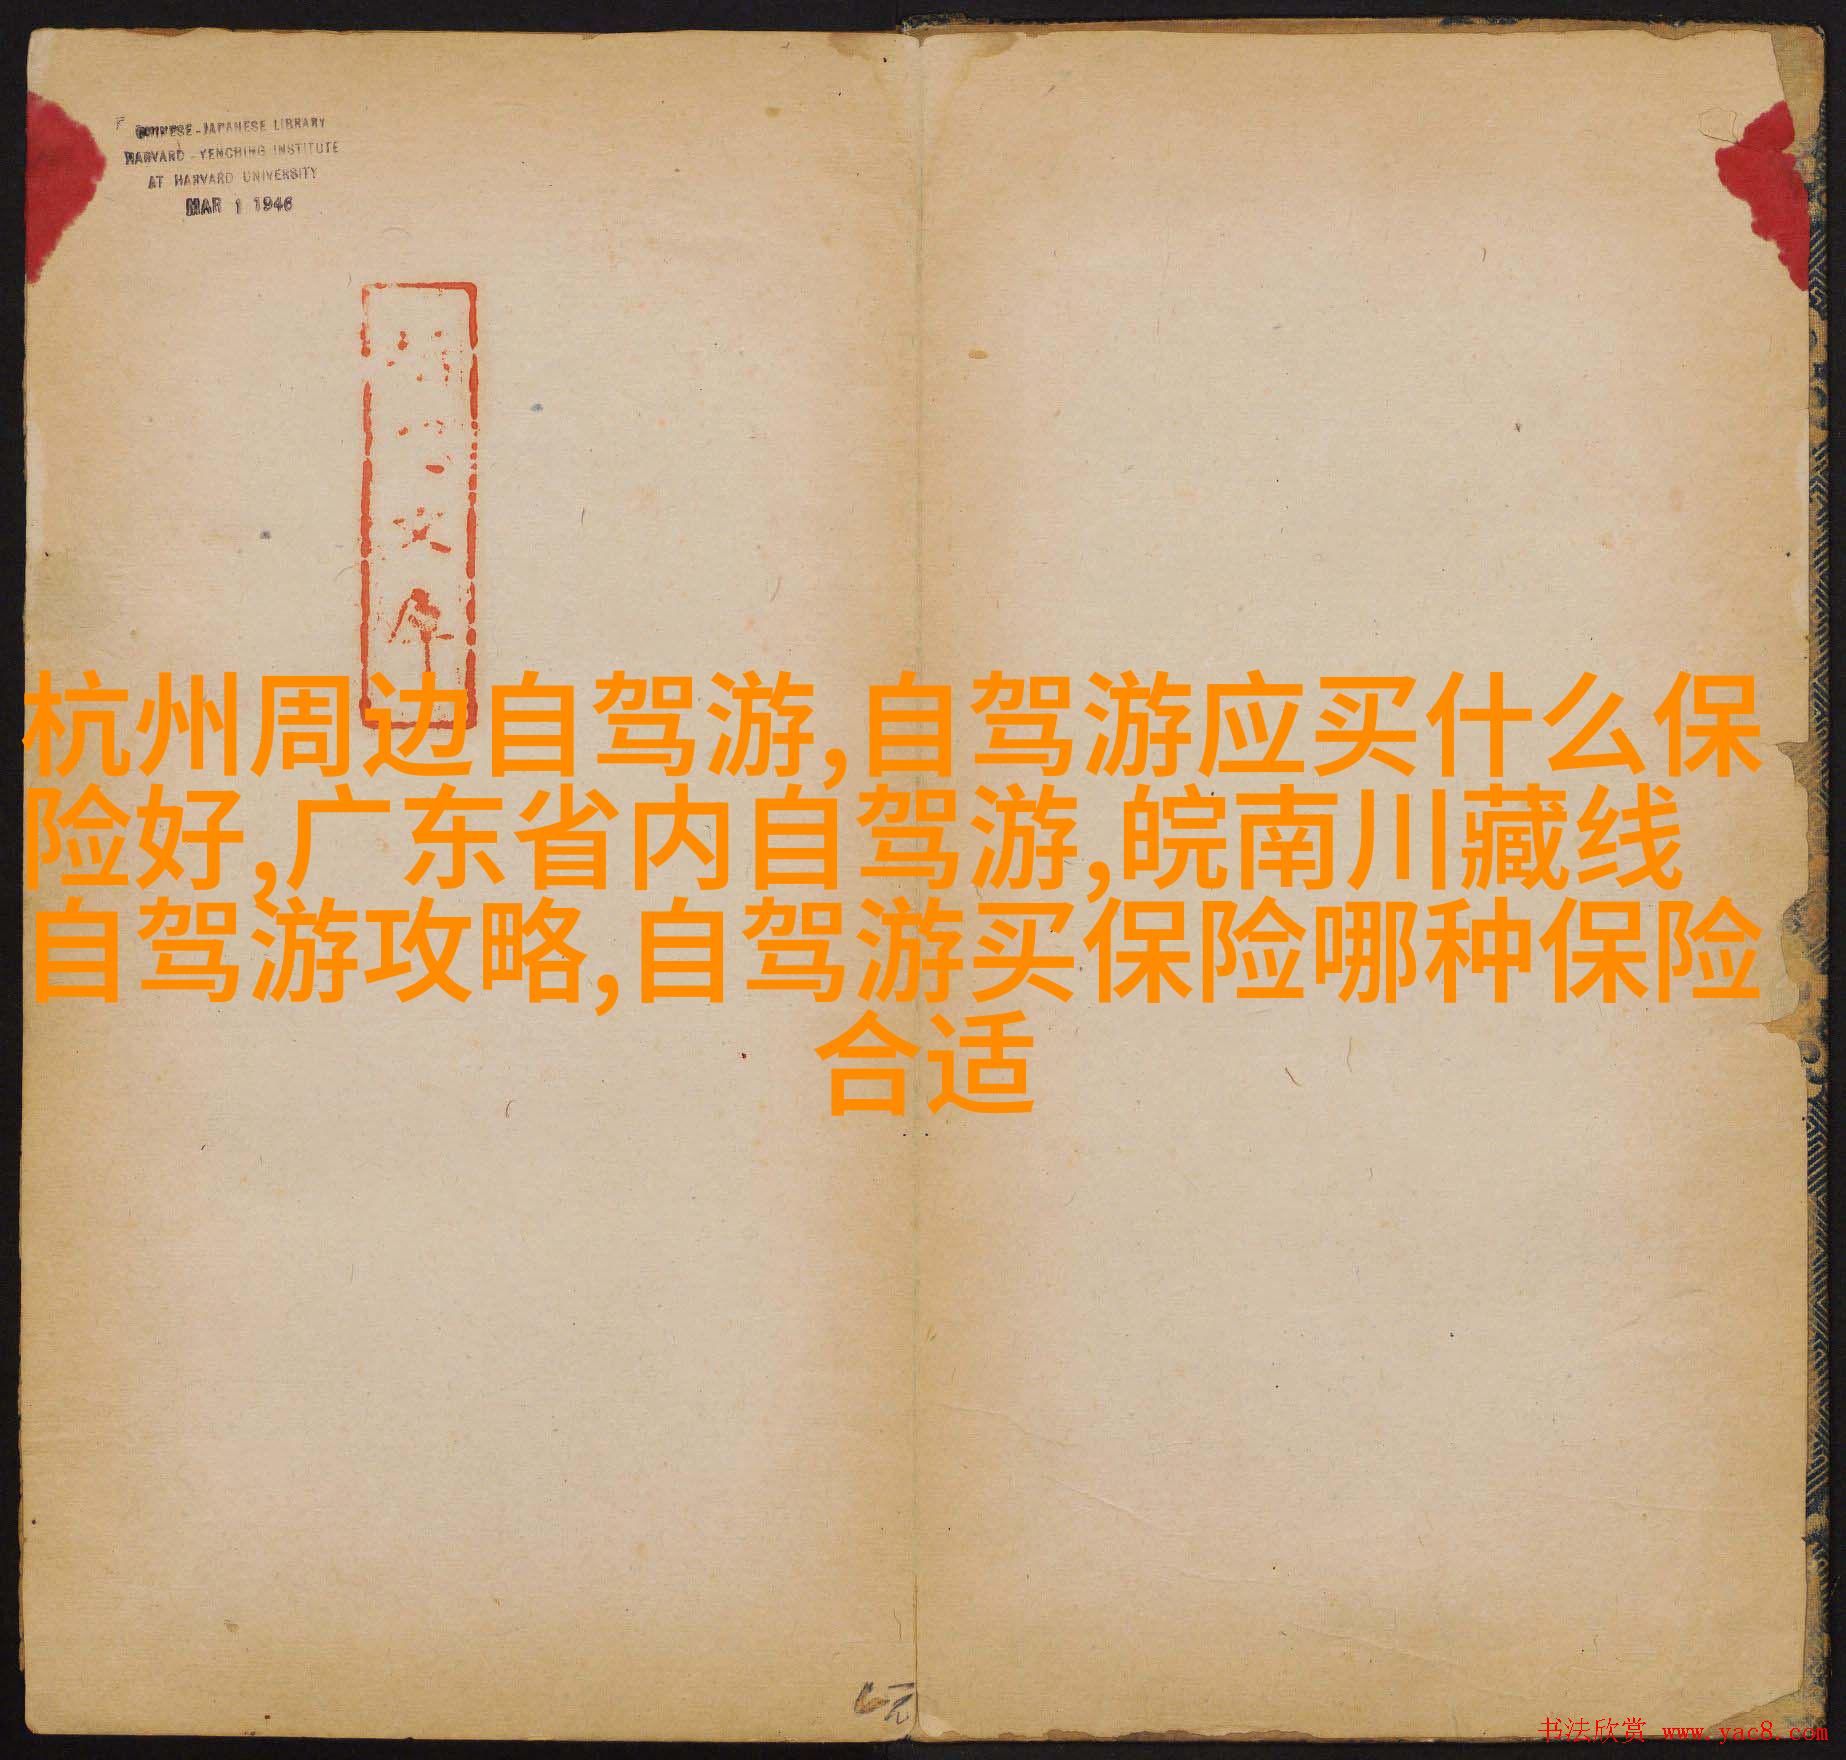 CHINESE-JAPANESE LIBRARY
HARVARD-YENCHING INSTITUTE
AT HARVARD UNIVERSITY
MAR 1 1946
杭州周边自驾游,自驾游应买什么保
险好,广东省内自驾游,皖南川藏线
自驾游攻略,自驾游买保险哪种保险
合适
元
书法欣赏 www.yac8.com